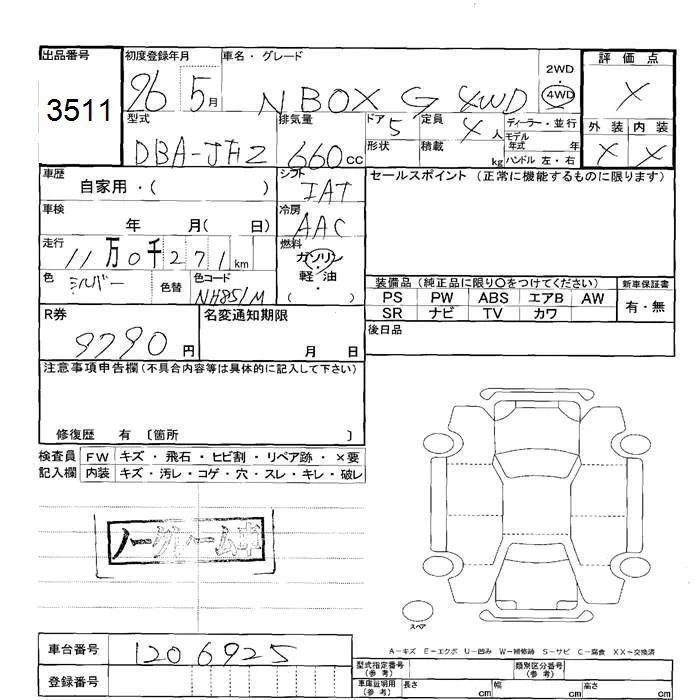 出品番号 初度登録年月 車名・グレード 評価点
3511 26 5月 N BOX G 4WD 2WD・4WD X
型式 排気量 ドア 5 定員 4人 ディーラー・並行 外装 内装
DBA-JF2 660cc 形状 積載 kg モデル年式 年 ハンドル 左・右 X X
車歴 自家用・( ) シフト IAT セールスポイント (正常に機能するものに限ります)
車検 年 月( 日) 冷房 AAC
走行 11万0千271km 燃料 ガソリン・軽油 ( )
色 シルバー 色替 色コード NH851M
装備品 (純正品に限り○をつけてください) 新車保証書
PS PW ABS エアB AW 有・無
SR ナビ TV カワ
R券 9790円 名変通知期限 月 日 後日品
注意事項申告欄 (不具合内容等は具体的に記入して下さい)
修復歴 有 〔箇所 〕
検査員 FW キズ・飛石・ヒビ割・リペア跡・×要
記入欄 内装 キズ・汚レ・コゲ・穴・スレ・キレ・破レ
ノークレーム車
スペア
A−キズ E−エクボ U−凹み W−補修跡 S−サビ C−腐食 XX−交換済
車台番号 1206925 型式指定番号 (参考) 類別区分番号 (参考)
登録番号 車庫証明用 (参考) 長さ cm 幅 cm 高さ cm